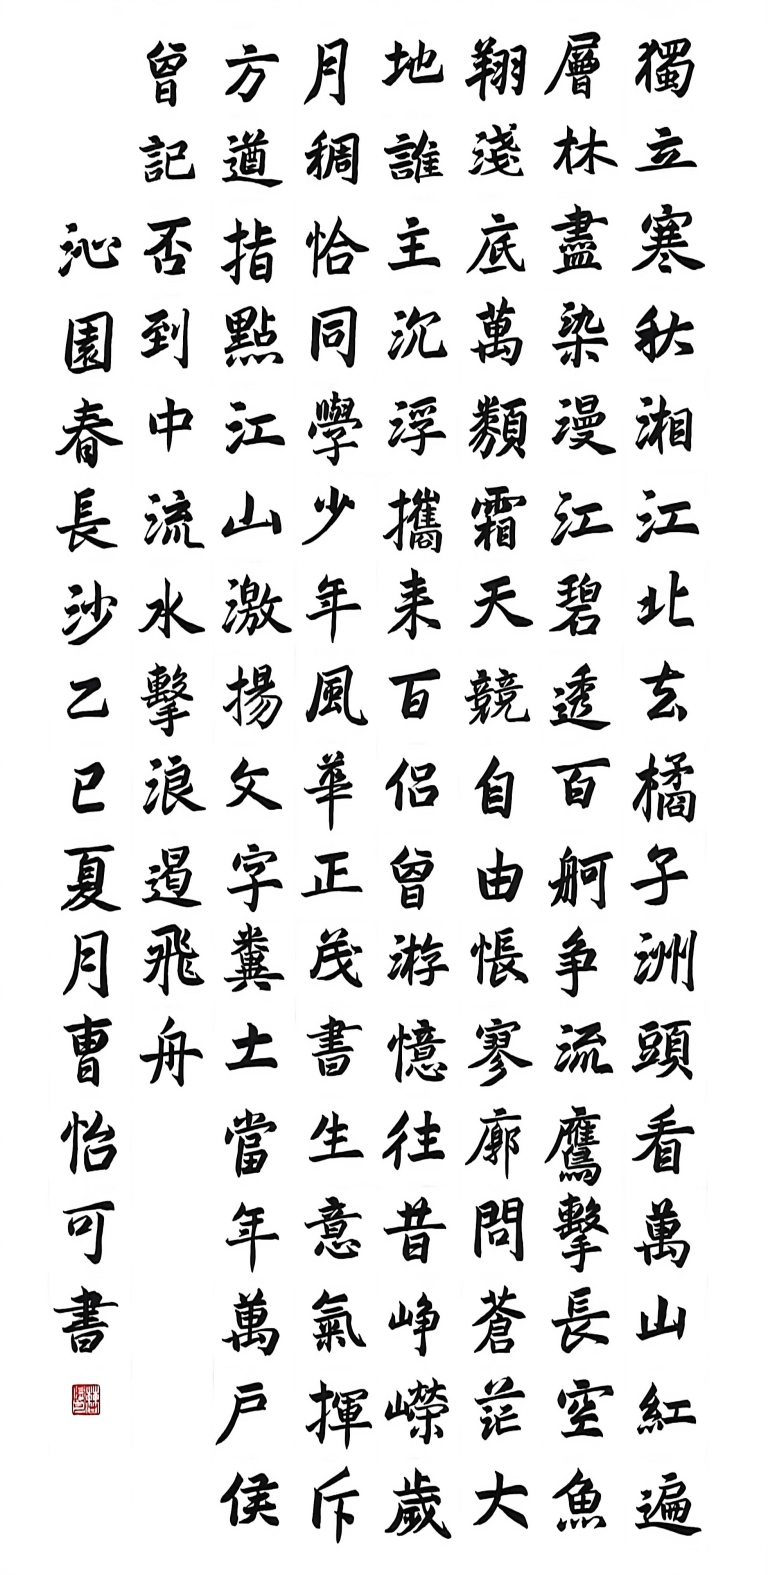 獨立寒秋湘江北去橘子洲頭看萬山紅遍
層林盡染漫江碧透百舸争流鷹擊長空魚
翔淺底萬類霜天競自由悵寥廓問蒼茫大
地誰主沉浮攜来百侣曾游憶往昔崢嶸歲
月稠恰同學少年風華正茂書生意氣揮斥
方遒指點江山激揚文字糞土當年萬户侯
曾記否到中流水擊浪遏飛舟
沁園春長沙乙巳夏月曹怡可書